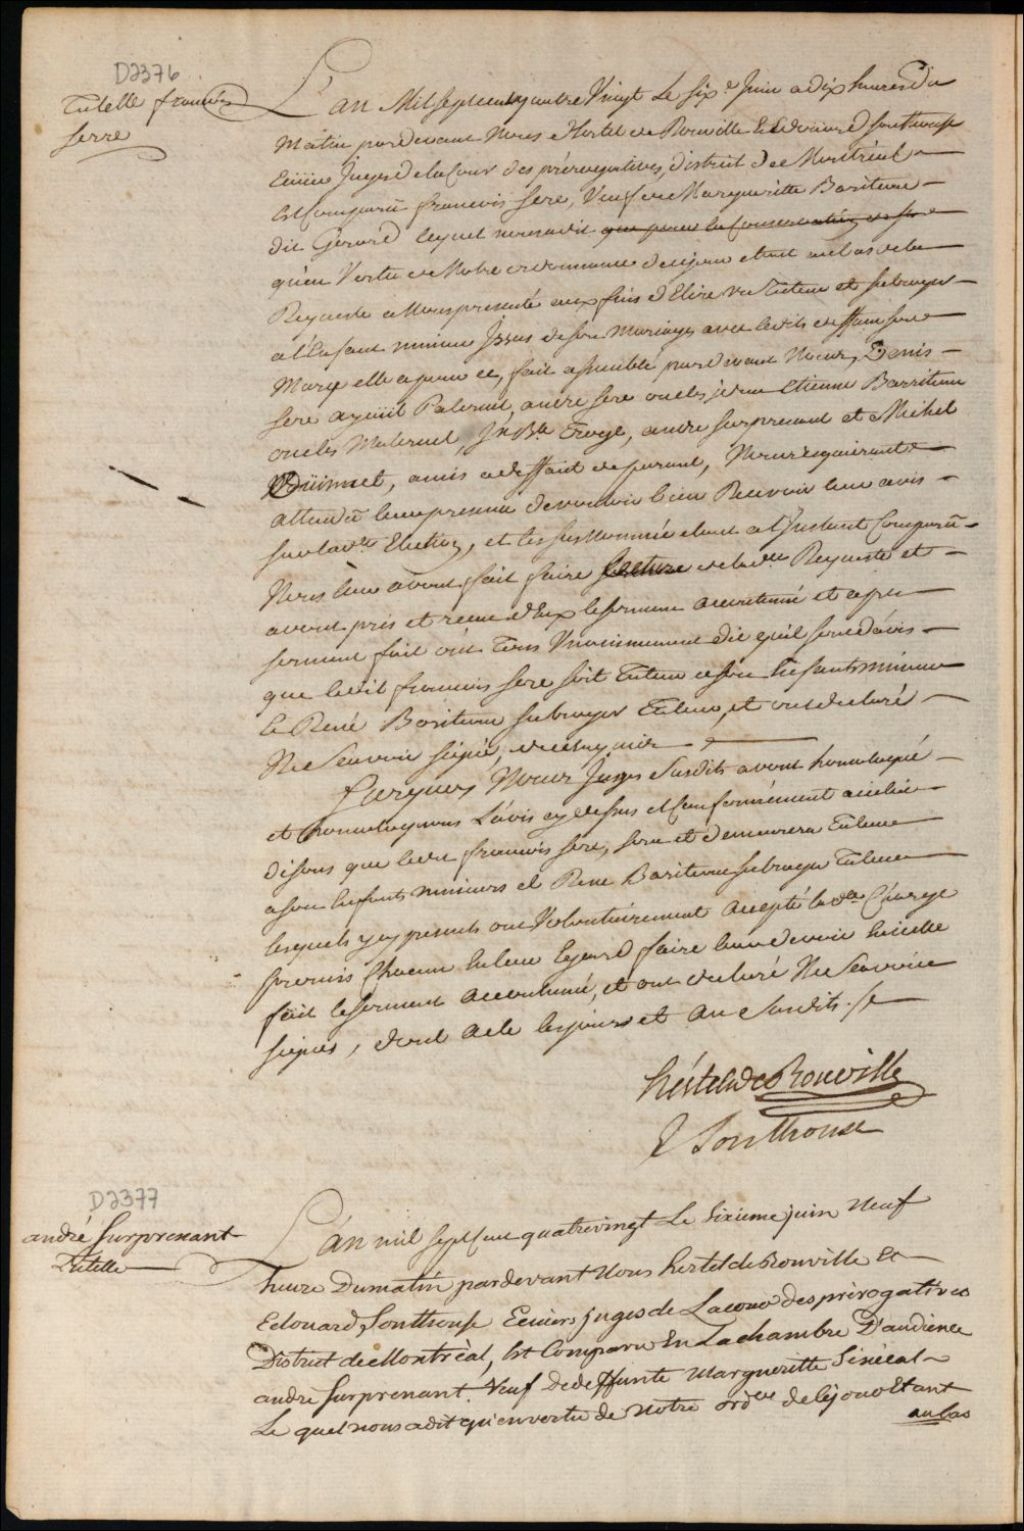 D2376
Tutelle francois
serre
L'an Mil sept cent quatre Vingt Le six.e Juin a dix heures du
Matin pardevant Nous Hertel de Rouville Et Edouard Southouse
Ecuiers Juges de la Cour des prérogatives, district de Montréal
Est Comparu francois sere, Veuf de Margueritte Bariteau
dit Gerard lequel nous a dit que pour la Conservation
qu'en Vertu de Notre ordonnance de ce jour etant au bas de la
Requeste a Nous presenté aux fins d'Elire un Tuteur et subroger
a l'Enfant mineur Issus de son Mariage avec ladite deffunte
Marg elle a pour ce, fait assemblé pardevant Nous, Denis
sere ayeüil Paternel, andre sere oncle, Etienne Barriteau
oncles Maternel, Jn Bte Troye, andre surprenant et Michel
Ouimet, amis a deffaut de parant, Nous requierant
attendu leur presence de vouloir bien Recevoir leur avis
sur lad.te Election, et les susnommés etant a l'Instant Comparu
Nous leur avons fait faire lecture de lad.te Requeste et
avons pris et recue d'Eux le serment accoutumé et apres
serment fait ont Tous Unanimement dit qu'il sont d'avis
que ledit francois sere soit Tuteur a son Enfants mineur
Et René Bariteau subroger Tuteur, et ont declaré
Ne Scavoir signé, de ce requis
Surquoy Nous Juges Susdits avons homologué
et homologuons L'avis cy dessus et Conformément a icelui
disons que ledit francois sere, sera et demeurera Tuteur
a son Enfants mineurs et Rene Bariteau subroger Tuteur
lesquels y cy presents ont Volontairement accepté lad.te Charge
promis Chacun En leur Egard faire leur devoir En icelle
fait le serment accoutumé, et ont declaré Ne Scavoir
signés, dont acte les jours et an Susdits
hertel de Rouville
E Southouse
D2377
andré surprenant
Tutelle
L'án mil sept cent quatrevingt Le Sixieme juin Neuf
heure Dumatin pardevant Nous hertel de Rouville Et
Edouard Southouse Ecuiers juges de Lacour des prérogatives
District de Montréal, Est Comparu En Lachambre D'audience
andre Surprenant Veuf de deffunte Margueritte Sénécal
Le quel nous adit qu'en vertu de Notre ord.ce de Cejour Etant
au bas